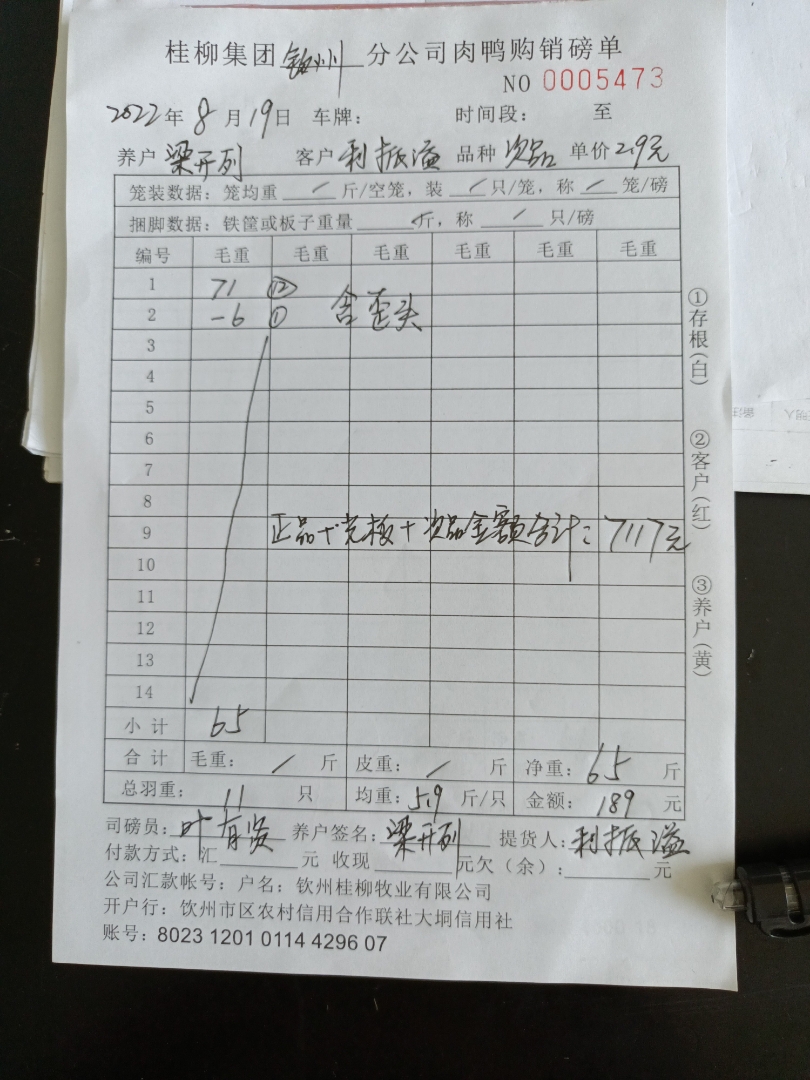 桂柳集团 钦州 分公司肉鸭购销磅单
NO 0005473
2022年 8月19日 车牌： 时间段： 至
养户 梁开列 客户 利振溢 品种 次品 单价 2.9元
笼装数据：笼均重 / 斤/空笼，装 / 只/笼，称 / 笼/磅
捆脚数据：铁筐或板子重量 斤，称 / 只/磅
编号 毛重 毛重 毛重 毛重 毛重 毛重
1 71 ⑫
2 -6 ① 含歪头
3
4
5
6
7
8
9 正品+壳板+次品金额合计：7117元
10
11
12
13
14
小计 65
合计 毛重： / 斤 皮重： / 斤 净重：65 斤
总羽重： 11 只 均重：5.9 斤/只 金额：189 元
司磅员：叶有贤 养户签名：梁开列 提货人：利振溢
付款方式：汇 元 收现 元欠（余）： 元
公司汇款帐号：户名：钦州桂柳牧业有限公司
开户行：钦州市区农村信用合作联社大垌信用社
账号：8023 1201 0114 4296 07
①存根（白）
②客户（红）
③养户（黄）